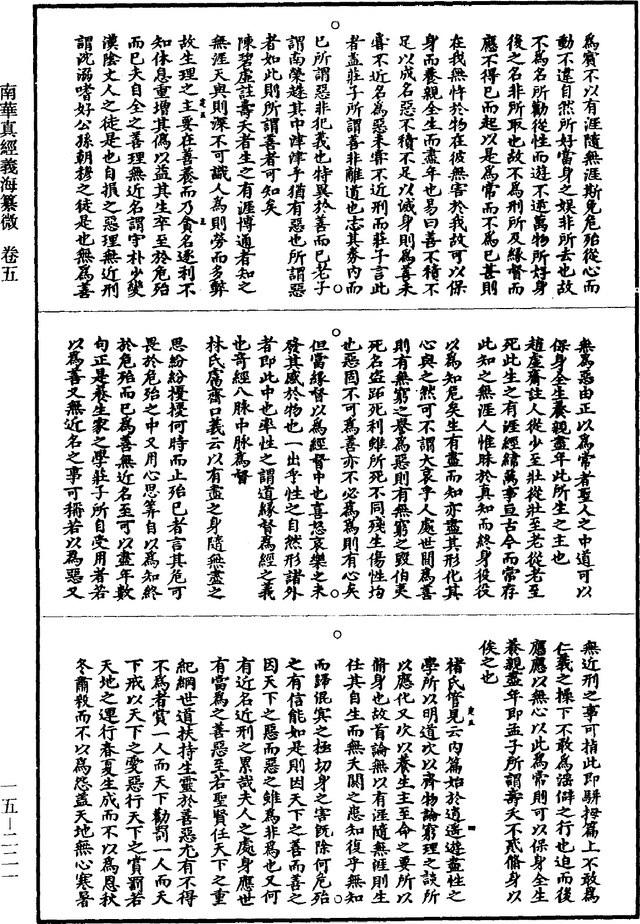 南華真經義海纂微 卷五
一五—二一一
爲賓不以有涯隨無涯斯免危殆從心而
動不違自然所好當身之娛非所去也故
不爲名所勸從性而遊不逆萬物所好身
後之名非所取也故不爲刑所及緣督而
應不得已而起以是爲常而不爲已甚則
在我無忤於物在彼無害於我故可以保
身而養親全生而盡年也易曰善不積不
足以成名惡不積不足以滅身則爲善未
嘗不近名爲惡未嘗不近刑而莊子言此
者蓋莊子所謂善非離道也志其券內而
已所謂惡非犯義也特異於善而已老子
謂南榮趎其中津津乎猶有惡也所謂惡
者如此則所謂善者可知矣
陳碧虛註壽夭者生之有涯博通者知之
無涯天與則深不可識人爲則勞而多弊
故生理之主要在善養而乃貪名逐利不
知休息重增其僞以益其生卒至於危殆
而已夫自全之善理無近名謂守朴少變
漢陰丈人之徒是也自損之惡理無近刑
謂沈溺嗜好公孫朝穆之徒是也無爲善
無爲惡由正以爲常者聖人之中道可以
保身全生養親盡年此所生之主也
趙虛齋註人從少至壯從壯至老從老至
死此生之有涯經緯萬事亘古今而常存
此知之無涯人惟昧於真知而終身役役
以爲知危矣生有盡而知亦盡其形化其
心與之然可不謂大哀乎人處世間爲善
則有無窮之譽爲惡則有無窮之毀伯夷
死名盜跖死利雖所死不同殘生傷性均
也惡固不可爲善亦不必爲爲則有心矣
但當緣督以爲經督中也喜怒哀樂之未
發其感於物也一出乎性之自然形諸外
者即此中也率性之謂道緣督爲經之義
也奇經八脉中脉爲督
林氏鬳齋口義云以有盡之身隨無盡之
思紛紛擾擾何時而止殆已者言其危可
畏於危殆之中又用心思筭自以爲知終
於危殆而已爲善無近名至可以盡年數
句正是養生家之學莊子所自受用者若
以爲善又無近名之事可稱若以爲惡又
無近刑之事可指此即駢拇篇上不敢爲
仁義之操下不敢爲淫僻之行也迫而後
應應以無心以此爲常則可以保身全生
養親盡年即孟子所謂壽夭不貳脩身以
俟之也
褚氏管見云內篇始於逍遙遊盡性之
學所以明道次以齊物論窮理之談所
以應化又次以養生主至命之要所以
脩身也故首論無以有涯隨無涯則生
任其自生而無夭閼之患知復乎無知
而歸混冥之極切身之害旣除何危殆
之有信能如是則因天下之善而善之
因天下之惡而惡之雖爲非爲也又何
有近名近刑之累哉夫人之處身應世
有當爲之善惡至若聖賢任天下之重
紀綱世道扶持生靈於善惡尤有不得
不爲者賞一人而天下勸罰一人而天
下戒以天下之愛惡行天下之賞罰若
天地之運行春夏生成而不以爲恩秋
冬肅殺而不以爲怨蓋天地無心寒暑